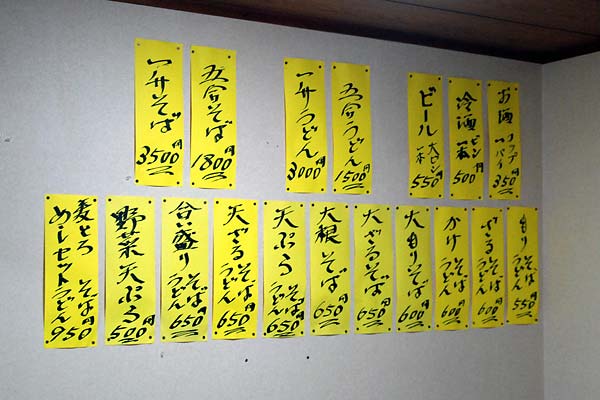 お酒 コップ一パイ 350円
冷酒 ビン一本 500円
ビール 大ビン一本 550円
五合うどん 1500円
一升うどん 3000円
五合そば 1800円
一升そば 3500円
もり そば うどん 550円
ざる そば うどん 600円
かけ そば うどん 600円
大もりそば 600円
大ざるそば 650円
大根そば 650円
天ぷら そば うどん 650円
天ざる そば うどん 650円
合盛り そば うどん 650円
野菜天ぷら 500円
麦とろめしセット そば うどん 950円